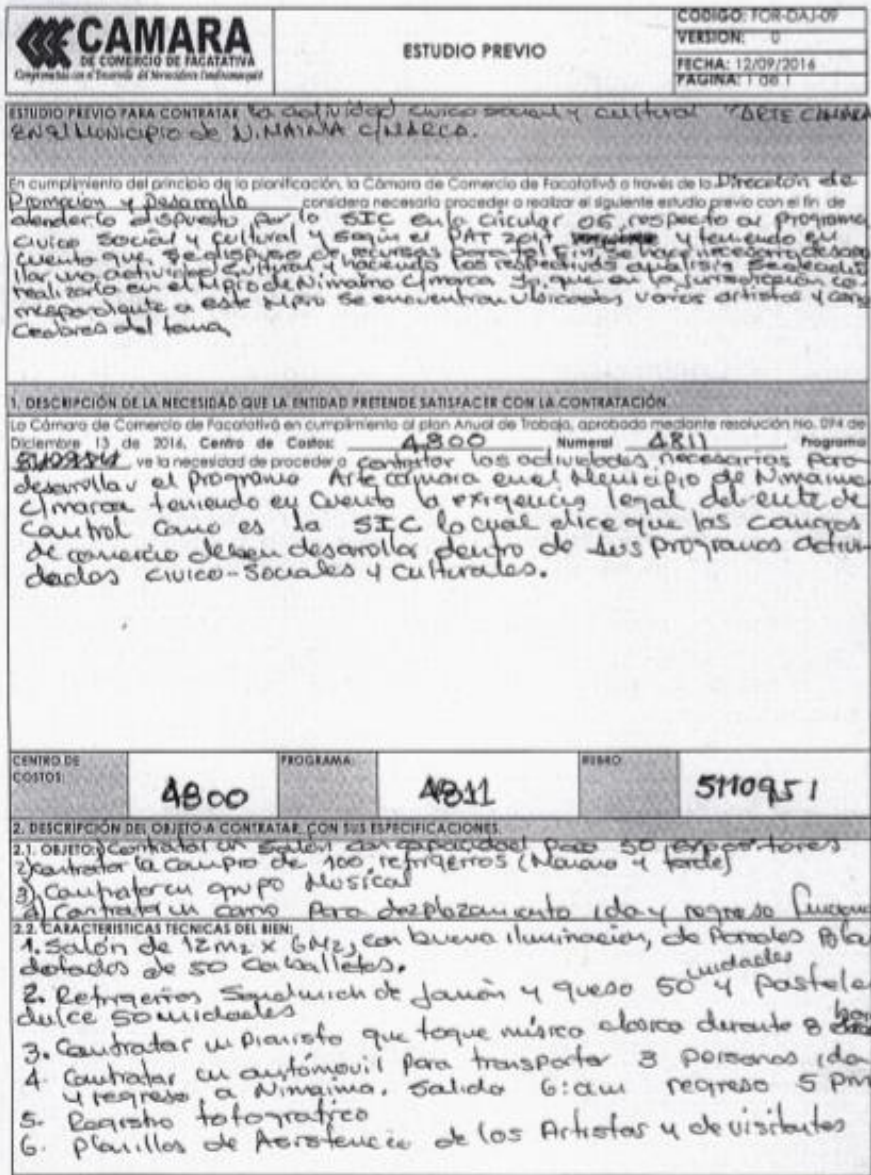 CAMARA
DE COMERCIO DE FACATATIVA
ESTUDIO PREVIO
CODIGO: FOR-DAJ-09
VERSION: 0
FECHA: 12/09/2016
PAGINA: 1 de 1
ESTUDIO PREVIO PARA CONTRATAR la actividad civico social y cultural "ARTE CAMARA
EN el MUNICIPIO de NIMAIMA C/MARCA.
En cumplimiento del principio de la planificación, la Cámara de Comercio de Facatativá a través de la Dirección de
Promocion y Desarrollo considera necesario proceder a realizar el siguiente estudio previo con el fin de
atender lo dispuesto por la SIC en la circular 06, respecto al programa
civico Social y Cultural y según el PAT 2017 y teniendo en
cuenta que, se dispuso de recursos para tal fin, se hace necesario desarro
llar una actividad Cultural y haciendo los respectivos analisis se
realizarla en el Mpio de Nimaima C/marca que en la jurisdicción co
rrespondiente a este Mpio se encuentran ubicados varios artistas y cono
cedores del tema,
1. DESCRIPCIÓN DE LA NECESIDAD QUE LA ENTIDAD PRETENDE SATISFACER CON LA CONTRATACIÓN
La Cámara de Comercio de Facatativá en cumplimiento al plan Anual de Trabajo, aprobado mediante resolución No. 094 de
Diciembre 13 de 2016, Centro de Costos: 4800 Numeral 4811 Programa
ve la necesidad de proceder a contratar las actividades necesarias para
desarrollar el programa Arte camara en el Municipio de Nimaima
C/marca teniendo en cuenta la exigencia legal del ente de
Control Como es la SIC la cual dice que las camaras
de comercio deben desarollar dentro de sus programas activi
dades civico-Sociales y Culturales.
CENTRO DE COSTOS: 4800 PROGRAMA: 4811 RUBRO: 5110951
2. DESCRIPCIÓN DEL OBJETO A CONTRATAR, CON SUS ESPECIFICACIONES
2.1. OBJETO: 1) Contratar un Salón con capacidad para 50 expositores
2) Contratar la compra de 100 refrigerios (Mañana y tarde)
3) Contratar un grupo Musical
4) Contratar un carro para dezplazamiento ida y regreso
2.2. CARACTERISTICAS TECNICAS DEL BIEN:
1. Salón de 12m2 x 6M2, con buena iluminación, de Paredes Bla
dotados de 50 caballetes.
2. Refrigerios Sanduwich de Jamón y queso 50 unidades y Pastele
dulce 50 unidades
3. Contratar un Pianista que toque música clasica durante 8
4. Contratar un automovil para transportar 3 personas ida
y regreso a Nimaima. Salida 6:am regreso 5 pm
5. Registro fotografico
6. Planillas de Asistencia de los Artistas y de visitantes